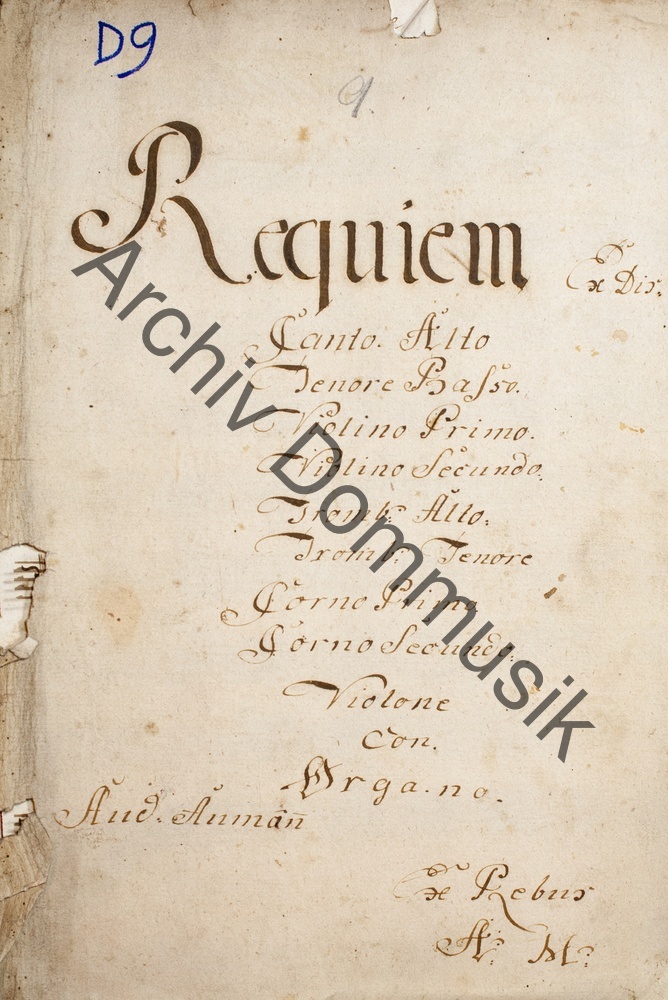 D9
9.
Requiem
Ex Dis.
Canto. Alto
Tenore Basso.
Violino Primo.
Violino Secundo.
Tromb: Alto.
Tromb: Tenore
Corno Primo
Corno Secundo.
Violone
Con.
Organo.
Aud. Aumañ
Ex Rebus
A: M:
Archiv Dommusik